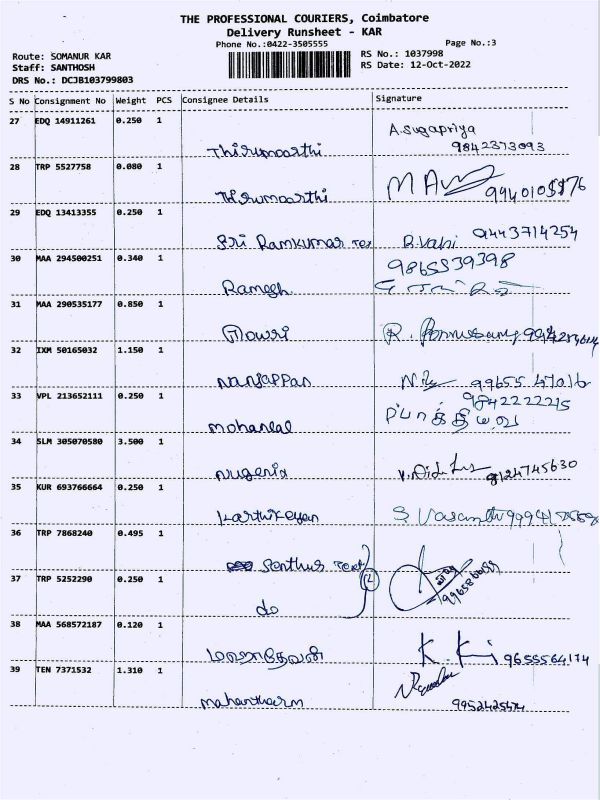 THE PROFESSIONAL COURIERS, Coimbatore
Delivery Runsheet - KAR
Phone No.:0422-3505555
Page No.:3
Route: SOMANUR KAR
RS No.: 1037998
Staff: SANTHOSH
RS Date: 12-Oct-2022
DRS No.: DCJB103799803
S No Consignment No Weight PCS Consignee Details Signature
27 EDQ 14911261 0.250 1
A.Sugapriya
Thirumoorthi 9842373093
28 TRP 5527758 0.080 1
Thirumoorthi
29 EDQ 13413355 0.250 1
Sri Ramkumar Tex 9443714254
30 MAA 294500251 0.340 1
9865539398
Ramesh
31 MAA 290535177 0.850 1
Gowri
32 IXM 50165032 1.150 1
Nanjappan 99655 47016
33 VPL 213652111 0.250 1
9842222215
Mohanlal
34 SLM 305070580 3.500 1
8124745630
35 KUR 693766664 0.250 1
Karthikeyan S. Vasanth
36 TRP 7868240 0.495 1
37 TRP 5252290 0.250 1
do
38 MAA 568572187 0.120 1
மஹாதேவன் 9655564174
39 TEN 7371532 1.310 1